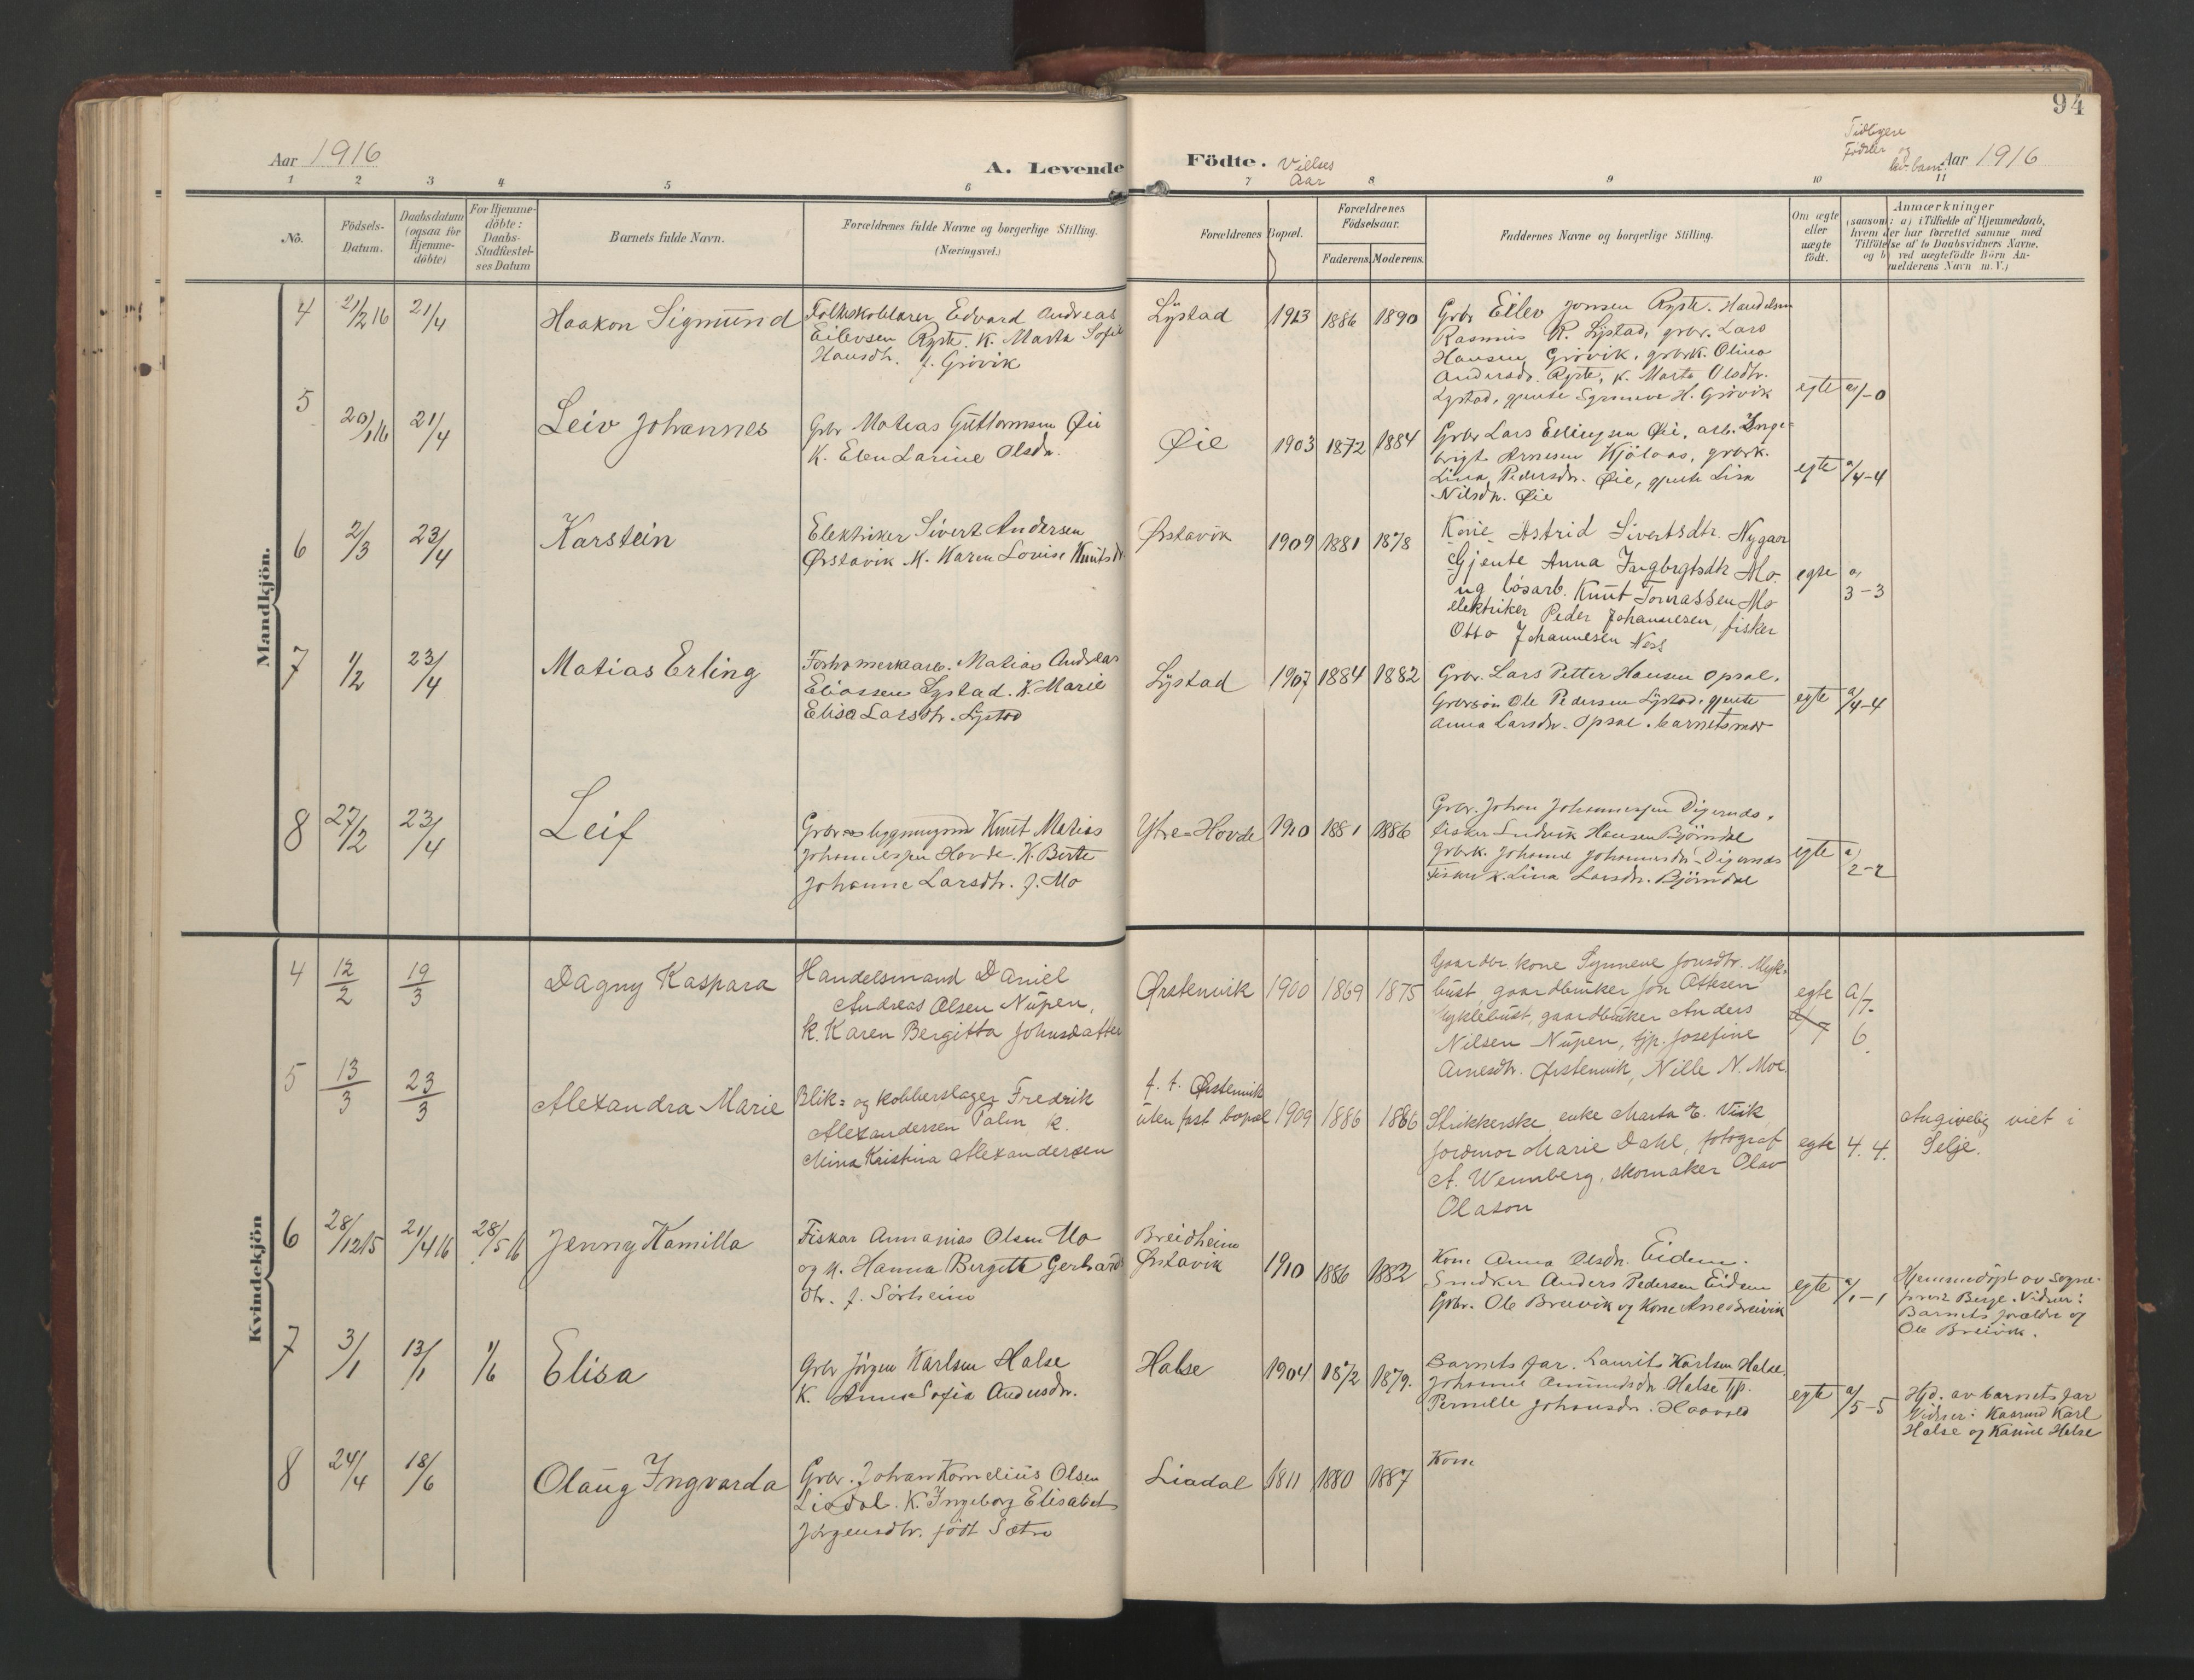 94
Aar 1916
A. Levende
Födte.
Vielses
Aar
Tidligere
Födsler og
lev. barn.
Aar 1916
1 2 3 4 5 6 7 8 9 10 11
No.
Födsels-
Datum.
Daabsdatum
(ogsaa for
Hjemme-
döbte)
For Hjemme-
döbte:
Daabs-
Stadfæstel-
ses Datum
Barnets fulde Navn.
Forældrenes fulde Navne og borgerlige Stilling.
(Næringsvei.)
Forældrenes Bopæl.
Forældrenes
Födselsaar.
Faderens. Moderens.
Faddernes Navne og borgerlige Stilling.
Om ægte
eller
uægte
födt.
Anmærkninger
(saasom: a) i Tilfælde af Hjemmedaab,
hvem der har forrettet samme med
Tilföielse af to Daabsvidners Navne,
og b) ved uægtefödte Börn An-
melderens Navn m. V.)
Mandkjön.
4 21/2 16 21/4 Haakon Sigmund
Folkskolelærer Edvard Andreas
Eilevsen Ryste. K. Marta Sofie
Hansdtr. f. Grövik
Lystad 1913 1886 1890
Grbr Eilev Jonsen Ryste. Handelsm
Rasmus R. Lystad, grbr. Lars
Hansen Grövik, grbrk. Olina
Andersdr. Ryste, k. Marta Olsdtr.
Lystad, gjente Synneve H. Grövik
egte a/1-0
5 20/1 16 21/4 Leiv Johannes
Grbr Matias Guttormsen Øie
K. Elen Larine Olsdr.
Øie 1903 1872 1884
Grbr Lars Ellingsen Øie, arb. Inge-
brigt Arnesen Kjölaas, grbrk.
Lina Pedersdr. Øie, gjente Lisa
Nilsdr. Øie
egte a/4-4
6 2/3 23/4 Karstein
Elektriker Sivert Andersen
Ørstavik K. Karen Lovise Knutsdr
Ørstavik 1909 1881 1878
Kone Astrid Sivertsdtr. Nygaar
Gjente Anna Ingbrgtsdtr Mo.
ug. lösarb. Knut Tomassen Mo
elektriker Peder Johannesen, fisker
Otto Johannesen Ness
egte a/ 3-3
7 1/2 23/4 Matias Erling
Matias Andreas
Eliassen Lystad. K. Marie
Elisa Larsdtr. Lystad
Lystad 1907 1884 1882
Grbr. Lars Petter Hansen Opsal,
Grbrsön Ole Pedersen Lystad, gjente
Anna Larsdr. Opsal. barnets mor
egte a/4-4
8 27/2 23/4 Leif
Grbr og bygningsm Knut Matias
Johannessen Hovde. K. Berte
Johanne Larsdtr. f. Mo
Ytre-Hovde 1910 1881 1886
Grbr. Johan Johannessen Digernes,
fisker Ludvik Hansen Björndal
Grbrk. Johanne Johannesdr. Digernes
Fisker K. Lina Larsdr. Björndal
egte a/ 2-2
Kvindekjön
4 12/2 19/3 Dagny Kaspara
Handelsmand Daniel
Andreas Olsen Nupen,
k. Karen Bergitta Johnsdatter
Ørstenvik 1900 1869 1875
Gaardbr. kone Synneve Jonsdtr. Mykle-
bust, gaardbruker Jon Ottesen
Myklebust, gaardbruker Anders
Nilsen Nupen, tjp. Josefine
Arnesdtr. Ørstenvik, Nille N. Moe.
egte a/7-
6.
5 13/3 23/3 Alexandra Marie
Blik- og kobberslager Fredrik
Alexandersen Palm k.
Mina Kristina Alexandersen
f. t. Ørstenvik
uten fast bopæl 1909 1886 1886
Strikkerske enke Marta E. Viik,
jordmor Marie Dahl, fotograf
A. Wennberg, skomaker Olav
Olason
egte 4. 4.
Angivelig viet i
Selje.
6 28/12 15 21/4 16 28/5 16 Jenny Kamilla
Fisker Annanias Olsen Mo
og k. Hanna Bergitte Gerhards
dtr. f. Sörheim
Breidheim
Ørstavik 1910 1886 1882
Kone Anna Olsdr. Eidem.
Snedker Anders Pedersen Eidem
Grbr. Ole Breivik og Kone Ane Breivik
egte a/1-1
Hjemmedöpt av Sogne-
prest Berge. Vidner:
Barnets forældre og
Ole Breivik.
7 3/1 13/1 1/6 Elisa
Grbr Jörgen Karlsen Halse
K. Anne Sofia Andersdr.
Halse 1904 1872 1879.
Barnets far. Laurits Karlsen Halse.
Johanne Amundsdr. Halse tjp.
Pernille Johansdr. Haavold
egte a/5-5
Hjd. av barnets far
Vidner: Kaarmd Karl
Halse og Kamie Halse
8 24/4 18/6 Olaug Ingvarda
Grbr. Johan Kornelius Olsen
Liadal. K. Ingeborg Elisabet
Jörgensdtr. född Sætre
Liadal 1811 1880 1887
Kone